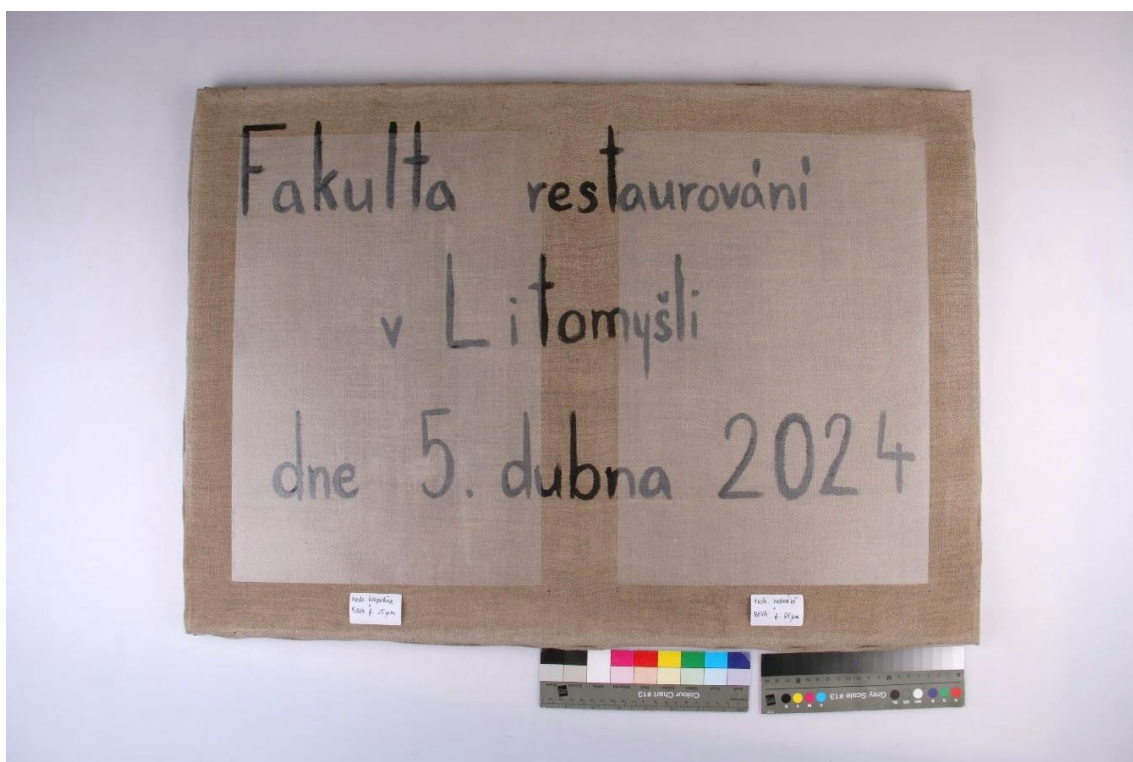 Fakulta restaurování
v Litomyšli
dne 5. dubna 2024
BEVA f. 25 µm
tech. hedvábí
BEVA f. 65 µm
Colour Chart #13
Grey Scale #13